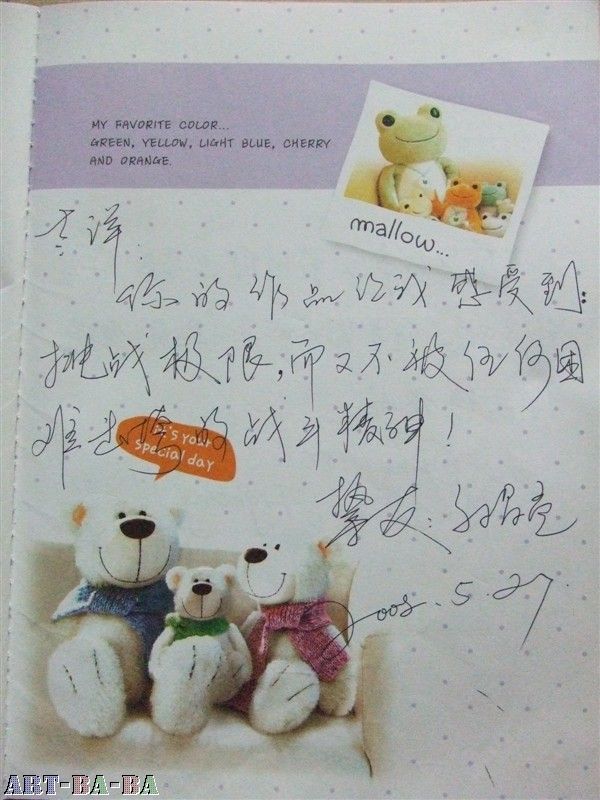 MY FAVORITE COLOR...
GREEN, YELLOW, LIGHT BLUE, CHERRY
AND ORANGE.
mallow...
洋:
你的作品让我感受到:
挑战极限,而又不被任何困
难击垮的战斗精神!
It's your
special day
挚友:
2008.5.27.
ART-BA-BA